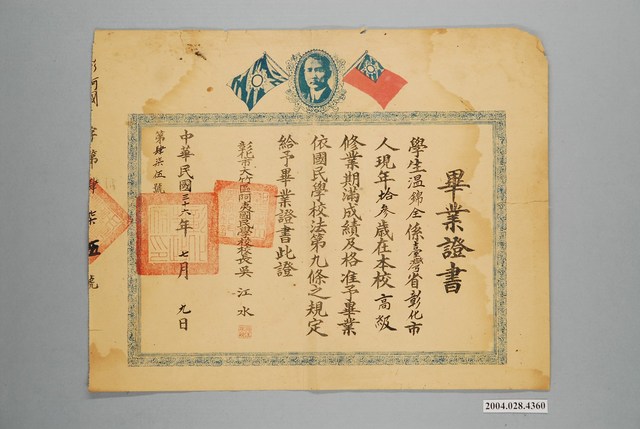 畢業證書
學生溫錦全係臺灣省彰化市
人現年拾參歲在本校高級
修業期滿成績及格准予畢業
依國民學校法第九條之規定
給予畢業證書此證
彰化市大竹區阿夷國民學校校長吳江水
中華民國三十六年七月九日
第肆柒伍號
字第肆柒五號
2004.028.4360